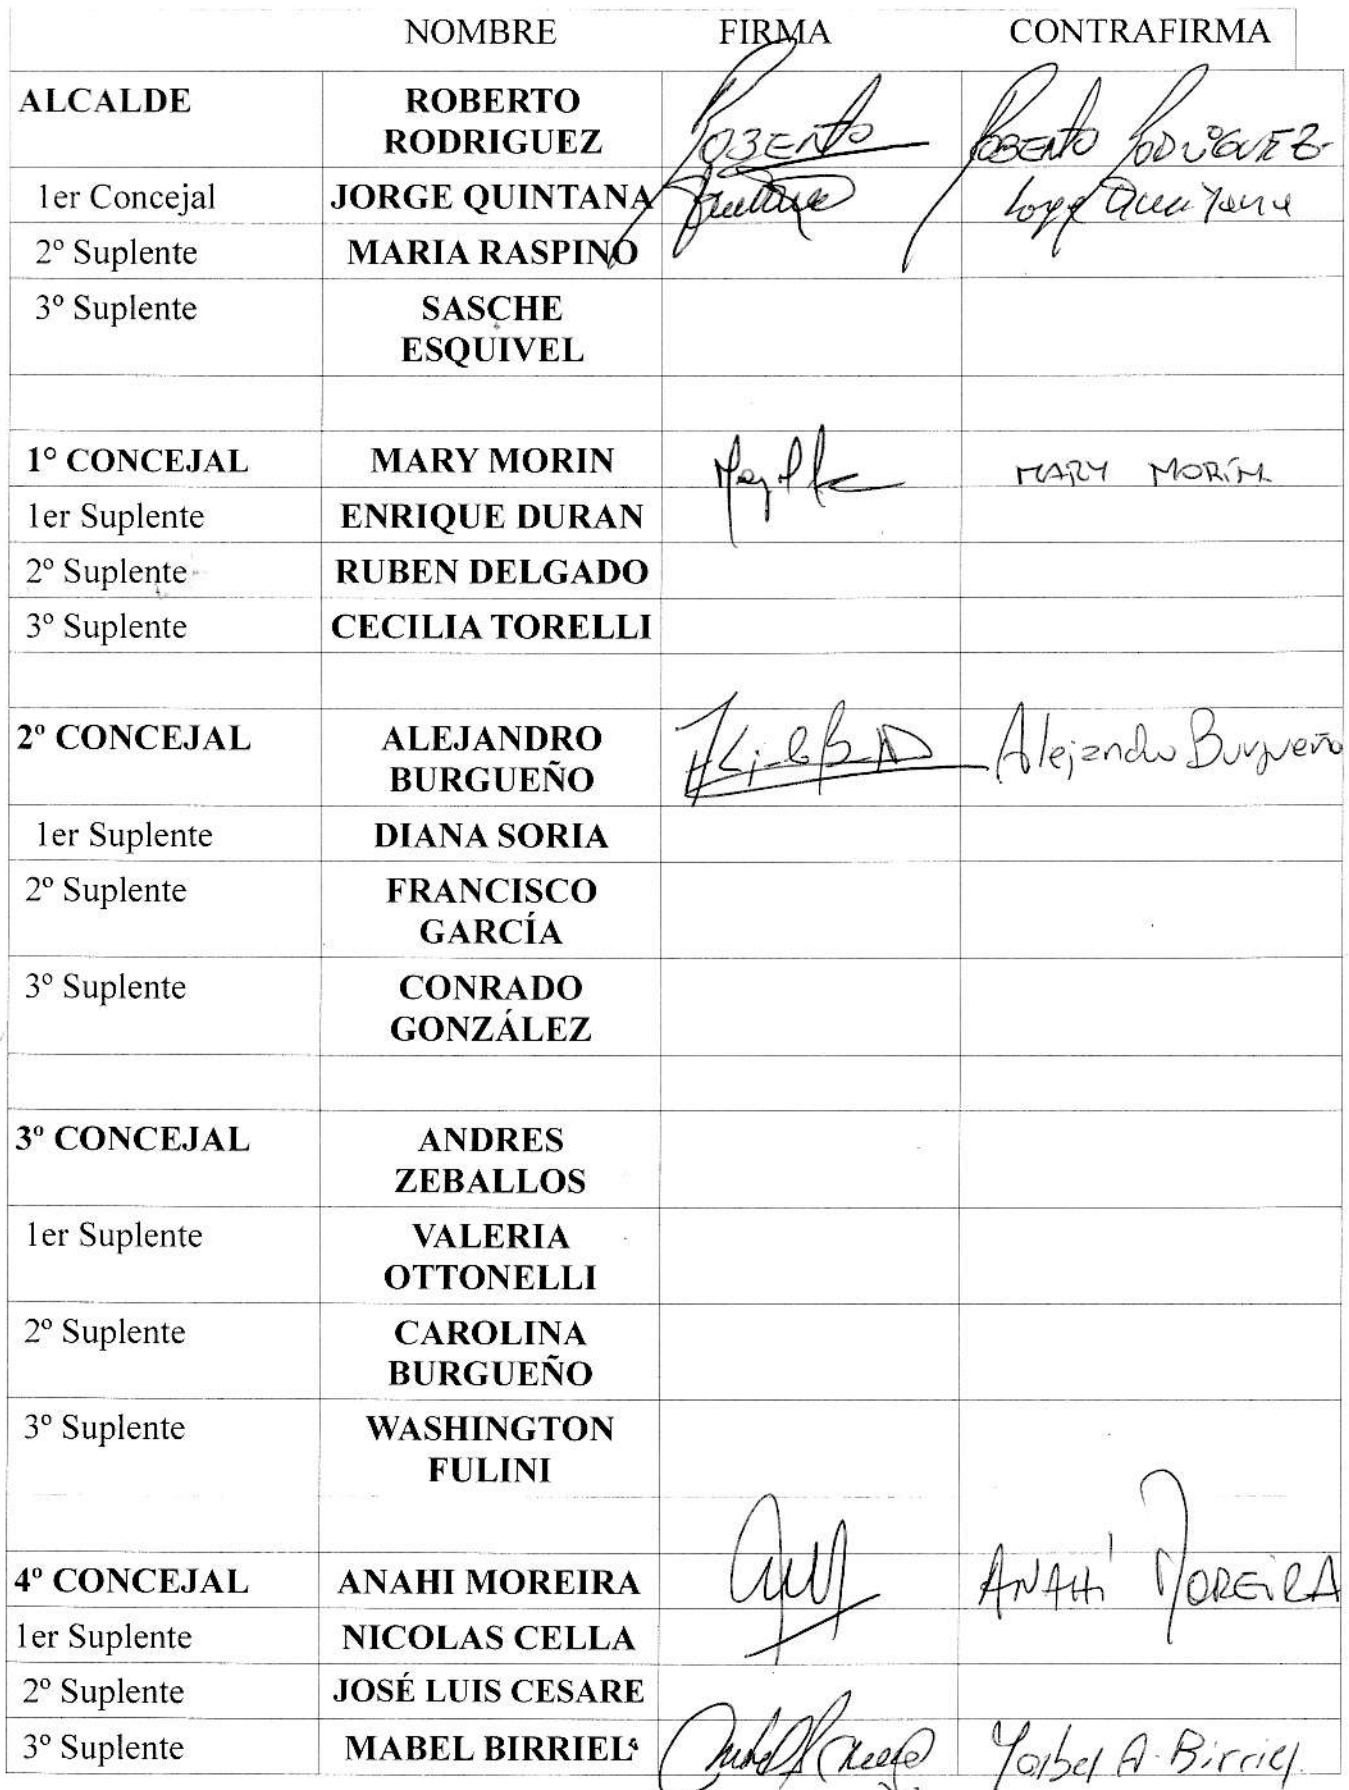 NOMBRE FIRMA CONTRAFIRMA
ALCALDE ROBERTO RODRIGUEZ ROBERTO ROBERTO RODRIGUEZ
1er Concejal JORGE QUINTANA Jorge Quintana
2º Suplente MARIA RASPINO
3º Suplente SASCHE
ESQUIVEL
1º CONCEJAL MARY MORIN MARY MORÍN
1er Suplente ENRIQUE DURAN
2º Suplente RUBEN DELGADO
3º Suplente CECILIA TORELLI
2º CONCEJAL ALEJANDRO Alejandro Burgueño
BURGUEÑO
1er Suplente DIANA SORIA
2º Suplente FRANCISCO
GARCÍA
3º Suplente CONRADO
GONZÁLEZ
3º CONCEJAL ANDRES
ZEBALLOS
1er Suplente VALERIA
OTTONELLI
2º Suplente CAROLINA
BURGUEÑO
3º Suplente WASHINGTON
FULINI
4º CONCEJAL ANAHI MOREIRA ANAHÍ MOREIRA
1er Suplente NICOLAS CELLA
2º Suplente JOSÉ LUIS CESARE
3º Suplente MABEL BIRRIEL A. Birriel